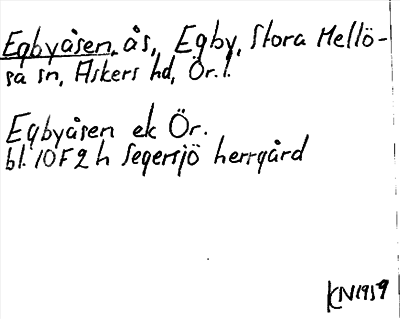 Egbyåsen, ås, Egby, Stora Mellö-
sa sn, Askers hd, Ör. l.
Egbyåsen ek Ör.
bl. 10F2h Segersjö herrgård
KN1959